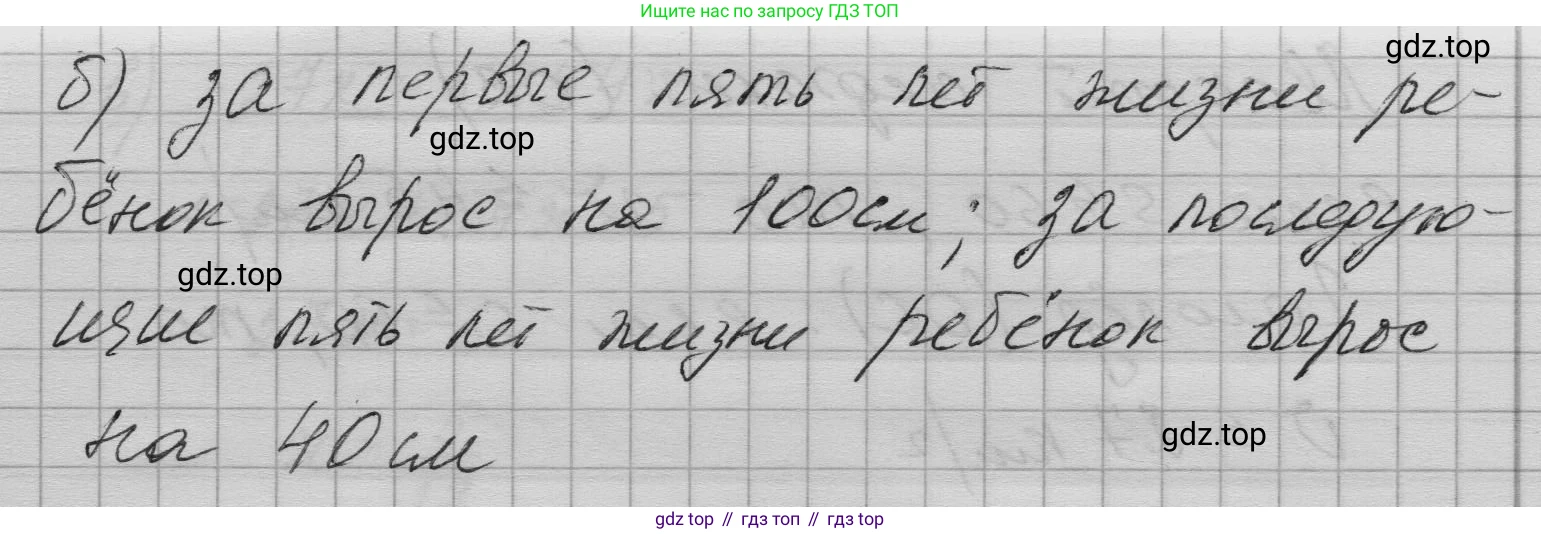 Ищите нас по запросу ГДЗ ТОП
gdz.top
б) за первые пять лет жизни ре-
gdz.top
бёнок вырос на 100см; за последую-
gdz.top
щие пять лет жизни ребёнок вырос
на 40 см
gdz.top
gdz top // гдз топ // gdz top